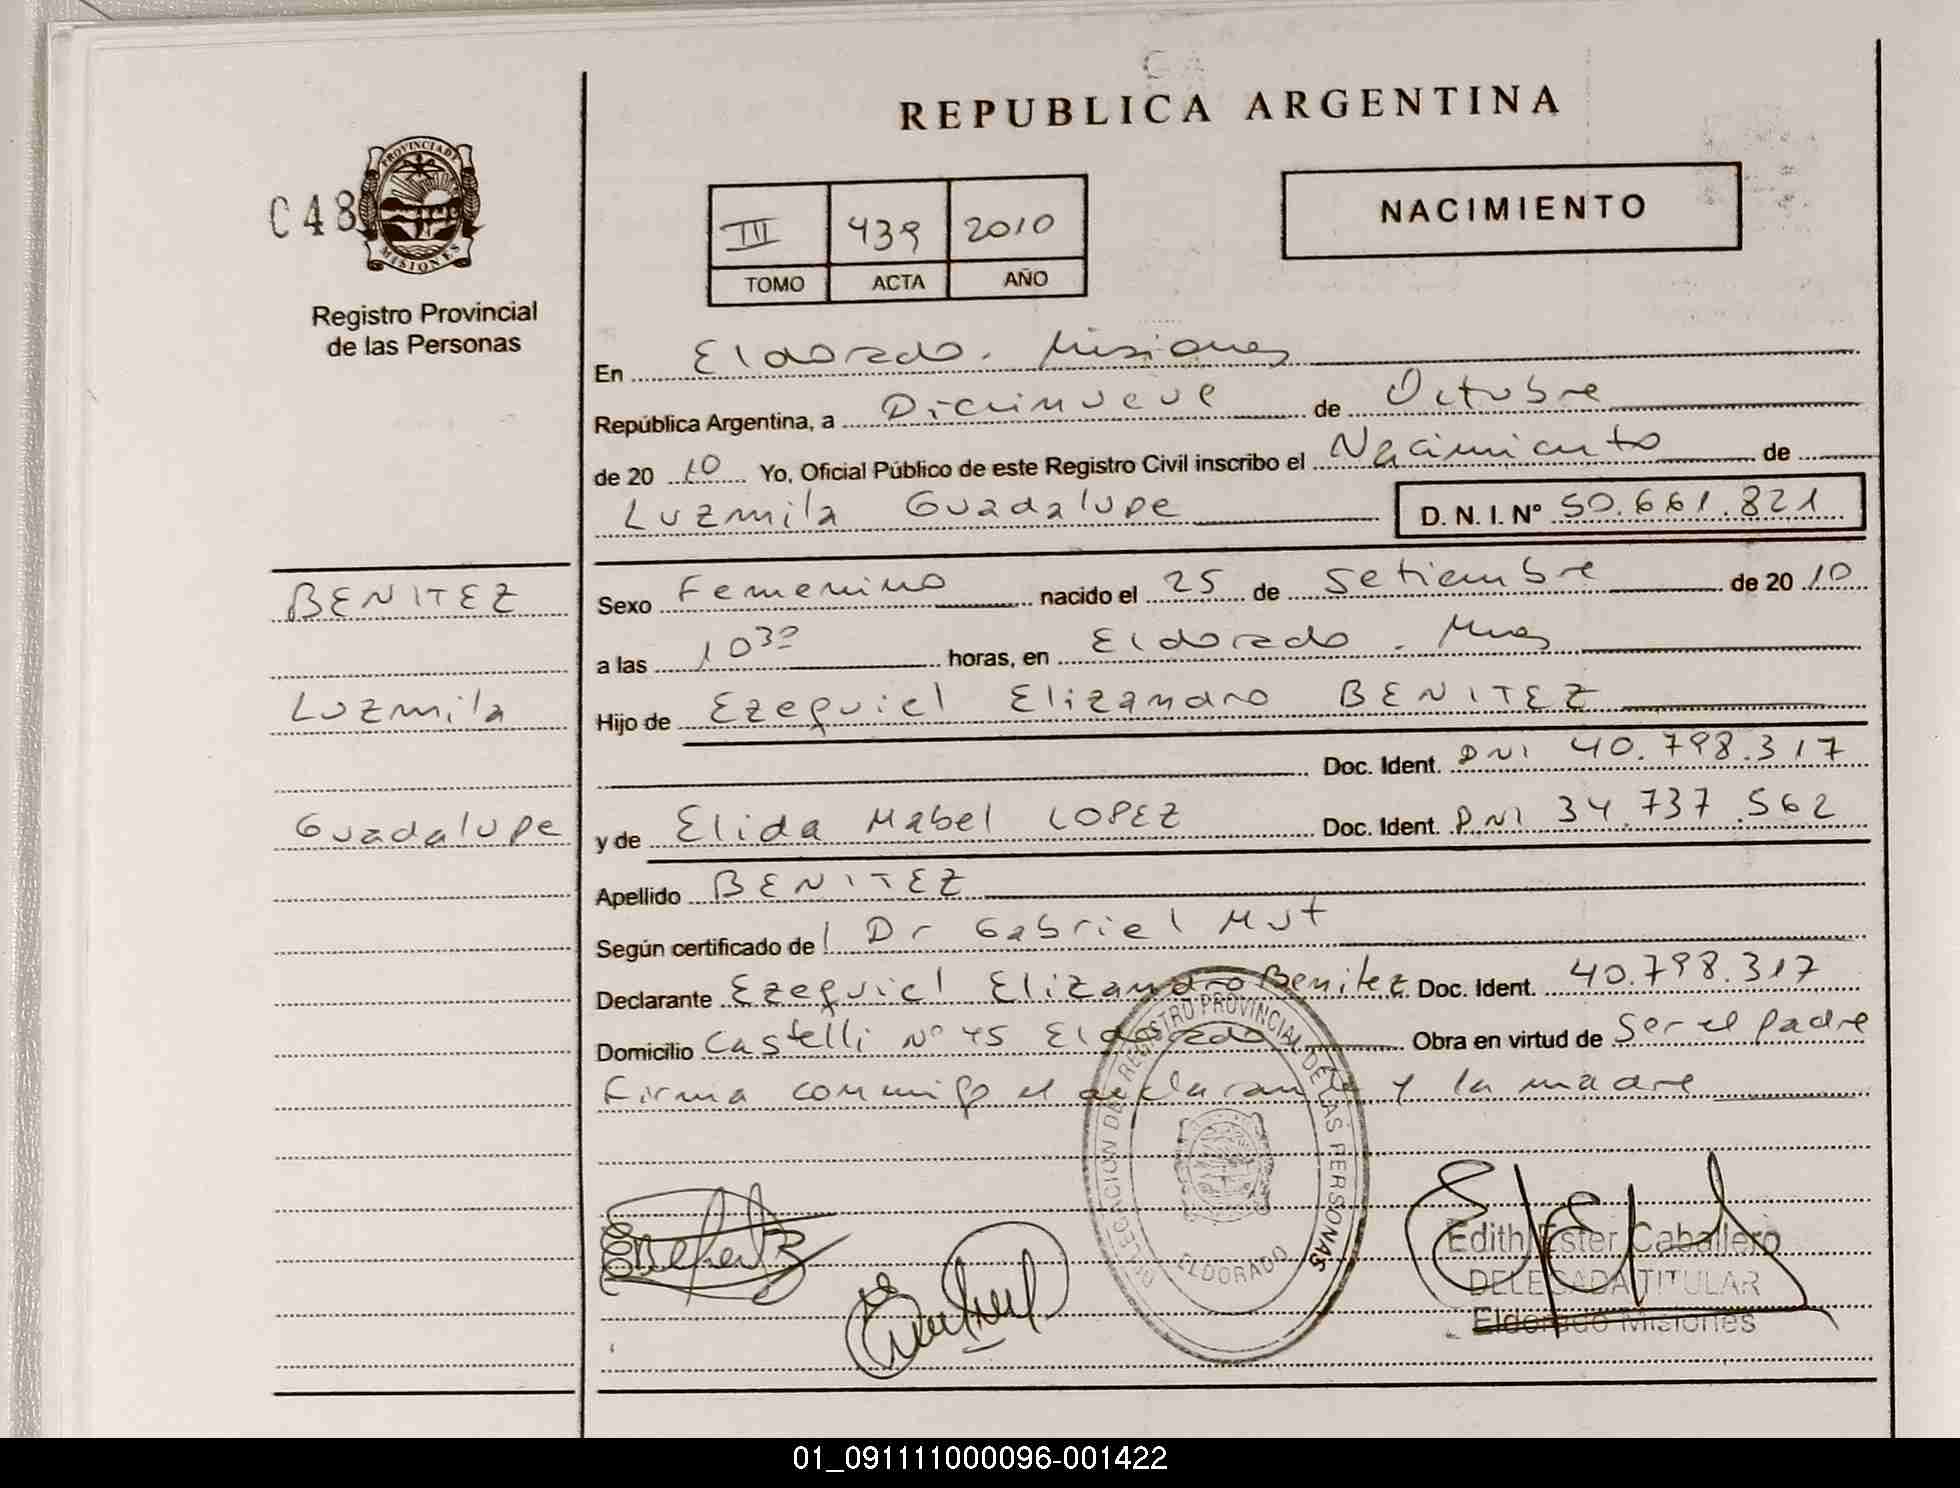 REPUBLICA ARGENTINA
PROVINCIA DE MISIONES
C48
Registro Provincial
de las Personas
III 439 2010
TOMO ACTA AÑO
NACIMIENTO
En Eldorado. Misiones
República Argentina, a Diecinueve de Octubre
de 20 10 Yo, Oficial Público de este Registro Civil inscribo el Nacimiento de
Luzmila Guadalupe D. N. I. Nº 50.661.821
BENITEZ
Luzmila
Guadalupe
Sexo Femenino nacido el 25 de Setiembre de 20 10
a las 10 30 horas, en Eldorado - Mnes
Hijo de Ezequiel Elizandro BENITEZ
Doc. Ident. DNI 40.798.317
y de Elida Mabel LOPEZ Doc. Ident. DNI 34.737.562
Apellido BENITEZ
Según certificado de l Dr Gabriel Mut
Declarante Ezequiel Elizandro Benitez Doc. Ident. 40.798.317
Domicilio Castelli Nº 45 Eldorado Obra en virtud de Ser el Padre
Firma conmigo el declarante y la madre
DELEGACION DEL REGISTRO PROVINCIAL DE LAS PERSONAS
ELDORADO
Edith Ester Caballero
DELEGADA TITULAR
Eldorado Misiones
01_091111000096-001422